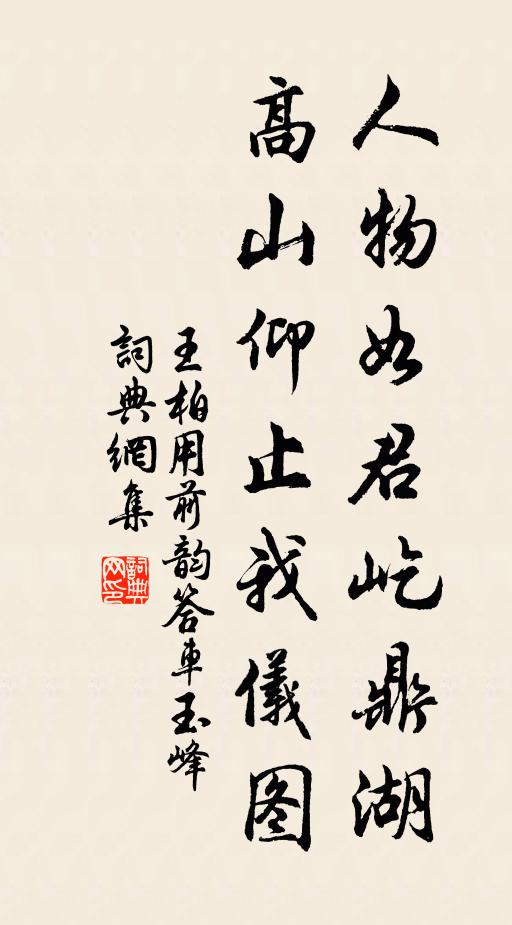 人物如君屹鼎湖
高山仰止我儀图
王柏用前韵答車玉峰
詞典網集
詞典网印